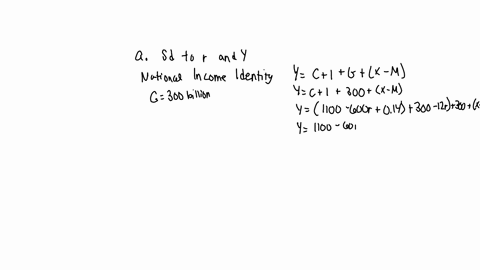 a. Sd to r and Y
National Income Identity
G = 300 billion
Y = C + I + G + (X - M)
Y = C + I + 300 + (X - M)
Y = (1100 - 600r + 0.1Y) + 300 - 12r) + 300 + (x
Y = 1100 - 60